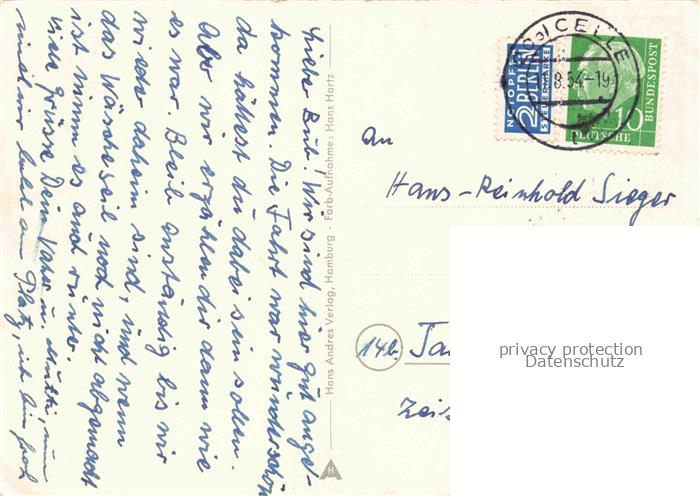 Liebe Bub! Wir sind hier gut ange-
kommen. Die Fahrt war wunderschön
da hättest du dabei sein sollen.
Aber wir erzählen dir dann wie
es war. Bleib anständig bis wir
wieder daheim sind, und wenn
das Wäscheseil noch nicht abgemacht
ist nimm es auch runter.
Viele Grüsse Dein Vater u. Mutti, nun
sind wir bald am Platz, ich bin froh
Hans Andres Verlag, Hamburg - Farb-Aufnahme: Hans Hartz
H
NOTOPFER
2 BERLIN
STEUERMARKE
CELLE
8.54-19
10
DEUTSCHE
BUNDESPOST
An
Hans-Reinhold Sieger
14b
privacy protection
Datenschutz